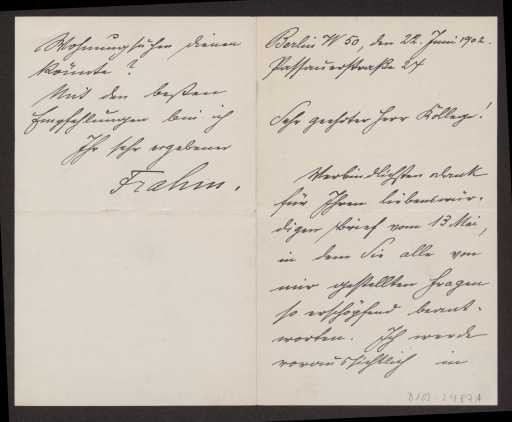 Berlin W 50, den 22. Juni 1902.
Passauerstraße 27
Sehr geehrter Herr Kollege!
Verbindlichsten Dank
für Ihren liebenswür-
digen Brief vom 13 Mai,
in dem Sie alle von
mir gestellten Fragen
so erschöpfend beant-
worten. Ich werde
voraussichtlich in
Wohnungsuchen dienen
könnte?
Mit den besten
Empfehlungen bin ich
Ihr sehr ergebener
Frahm.